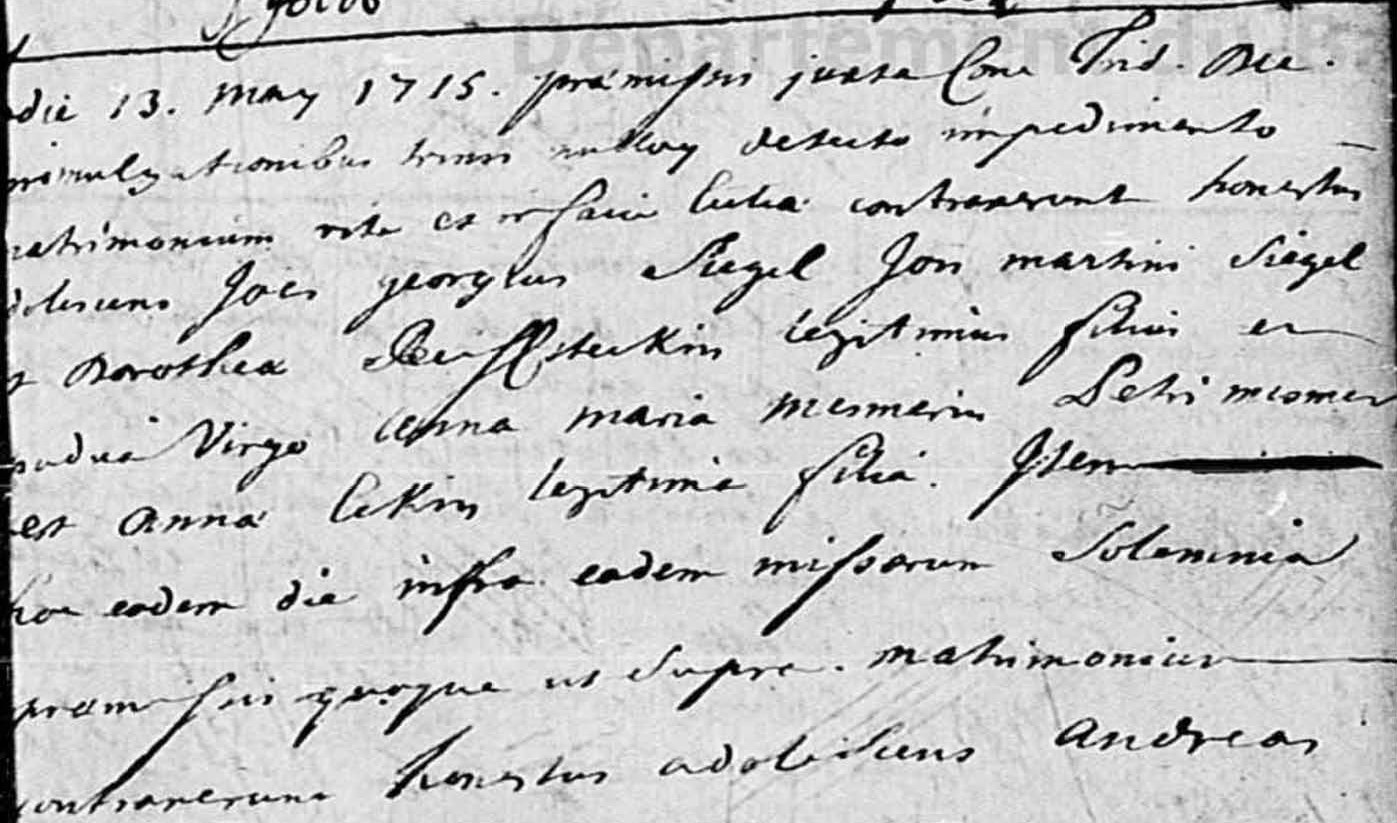 Département du Ba
die 13. May 1715. præmissis juxta Conc Trid. Dec.
promulgationibus trinis nulloq detecto impedimento
matrimonium rite et in facie contraxerunt honestus
adolescens Joes georgius Siegel Jois martini Siegel
et Dorothea legitimus filius et
pudica Virgo Anna maria mesmerin Petri mesmer
est Anna lekin legitima filia. Item
hoc eadem die infra eadem missarum Solemnia
præmissis quoque ut Supra. matrimonium
contraxerunt honestus adolescens Andreas